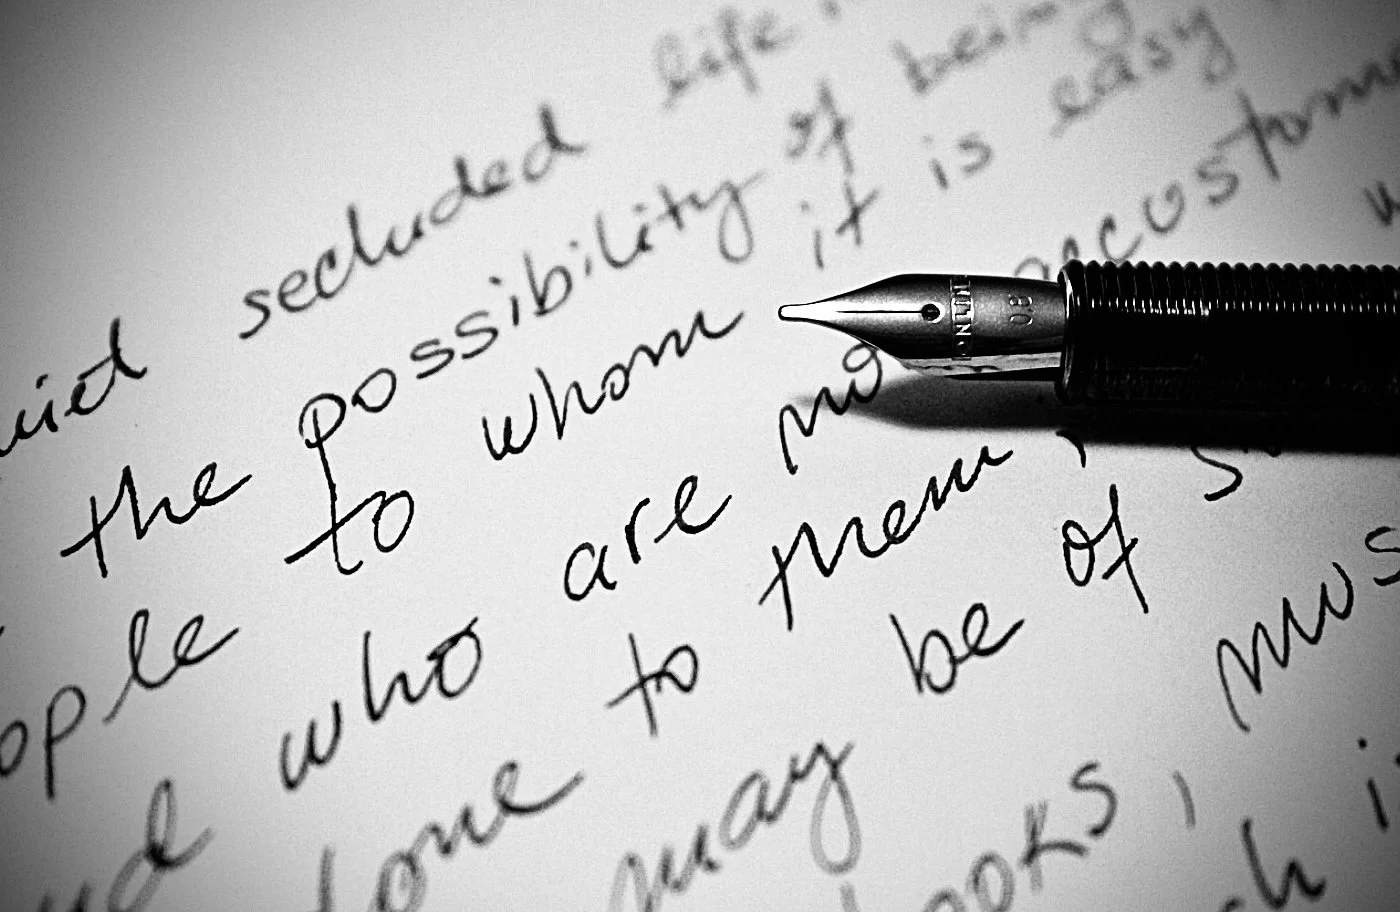 uiet secluded life,
the possibility of being
ople to whom it is easy
nd who are no accustome
done to them,
may be of s
ooks, mus
h i
ONLINE
0.8